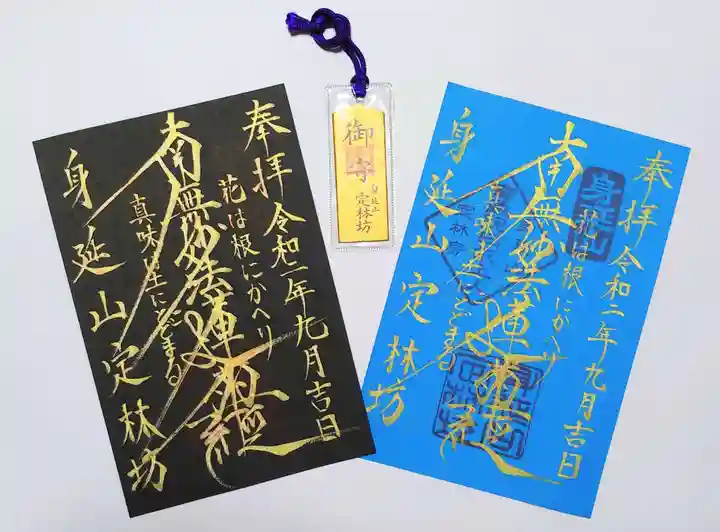 奉拝 令和二年九月吉日
花は根にかへり
南無妙法蓮華経
真味は土にとどまる
身延山定林坊
御守
身延山
定林坊
奉拝 令和二年九月吉日
花は根にかへり
南無妙法蓮華経
真味は土にとどまる
身延山定林坊
身延山